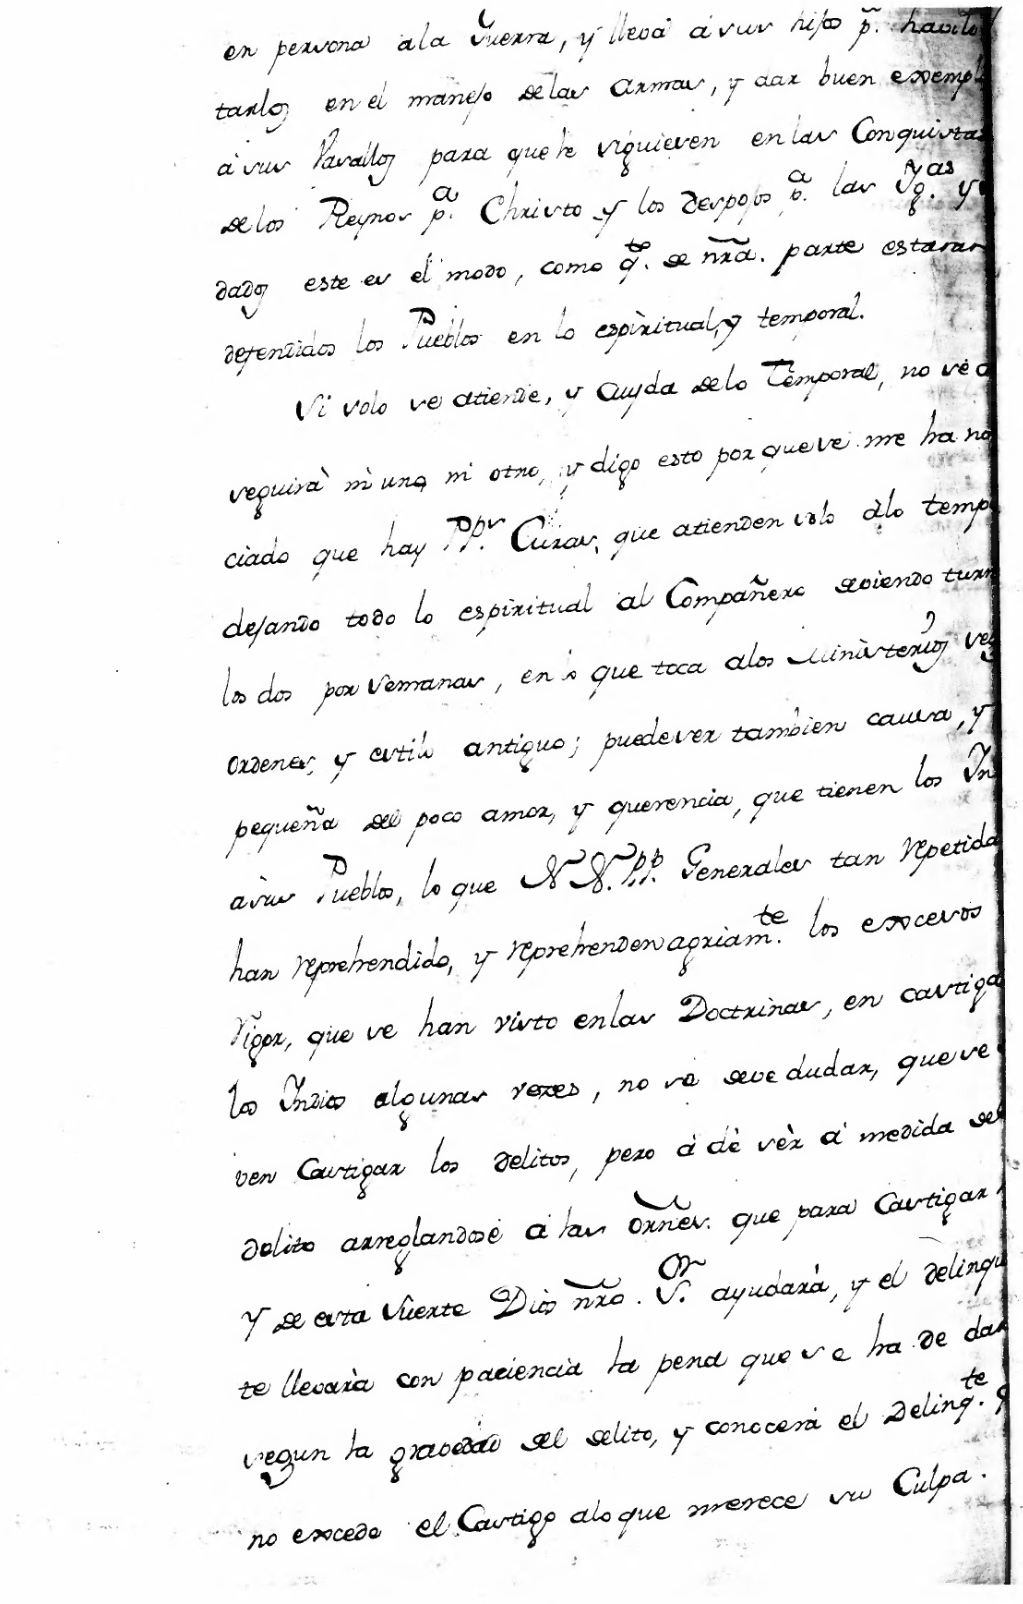 en persona ala Guerra, y lleva à sus hijos p.ª havili
tarlos en el manejo delas armas, y dar buen exempl
à sus Vasallos para que le siguiesen en las Conquistas
delos Reynos p.ª Christo y los despojos p.ª las Yg.as y
dados este es el modo, como q.to de nr̃a. parte estaran
defendidos los Pueblos en lo espiritual, y temporal.
Si solo se atiende, y Cuyda delo Temporal, no se
seguirà ni uno, ni otro, y digo esto por que se me ha no
ciado que hay PP.s Curas, que atienden solo àlo temp
dejando todo lo espiritual al Compañero deviendo turn
los dos por semanas, en lo que toca alos Ministerios
ordenes, y estilo antiguo; puede ser tambien causa, y
pequeña del poco amor, y querencia, que tienen los In
à sus Pueblos, lo que N N. P.P. Generales tan repetida
han reprehendido, y reprehenden agriam.te los excesos
rigor, que se han visto en las Doctrinas, en castiga
los Indios algunas vezes, no se deve dudar, que se
ven Castigar los delitos, pero à de sèr à medida del
delito arreglandose à las orñes. que para Castigar
Y de esta suerte Dios nrõ. S.or ayudarà, y el delinqu
te llevarà con paciencia la pena que se ha de dar
segun la gravedad del delito, y conocerà el Delinq.te q
no excede el Castigo alo que merece su Culpa.